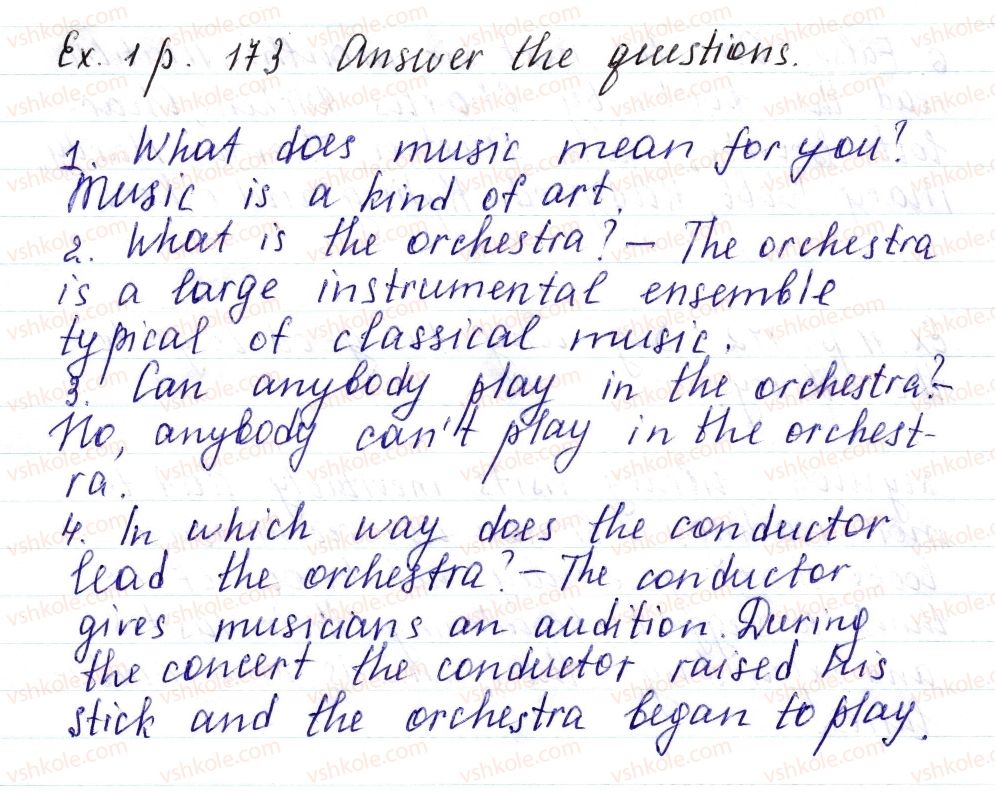 Ex. 1 p. 173 Answer the questions.
1. What does music mean for you?
Music is a kind of art.
2. What is the orchestra? – The orchestra
is a large instrumental ensemble
typical of classical music.
3. Can anybody play in the orchestra? –
No, anybody can't play in the orchest-
ra.
4. In which way does the conductor
lead the orchestra? – The conductor
gives musicians an audition. During
the concert the conductor raised his
stick and the orchestra began to play.
vshkole.com